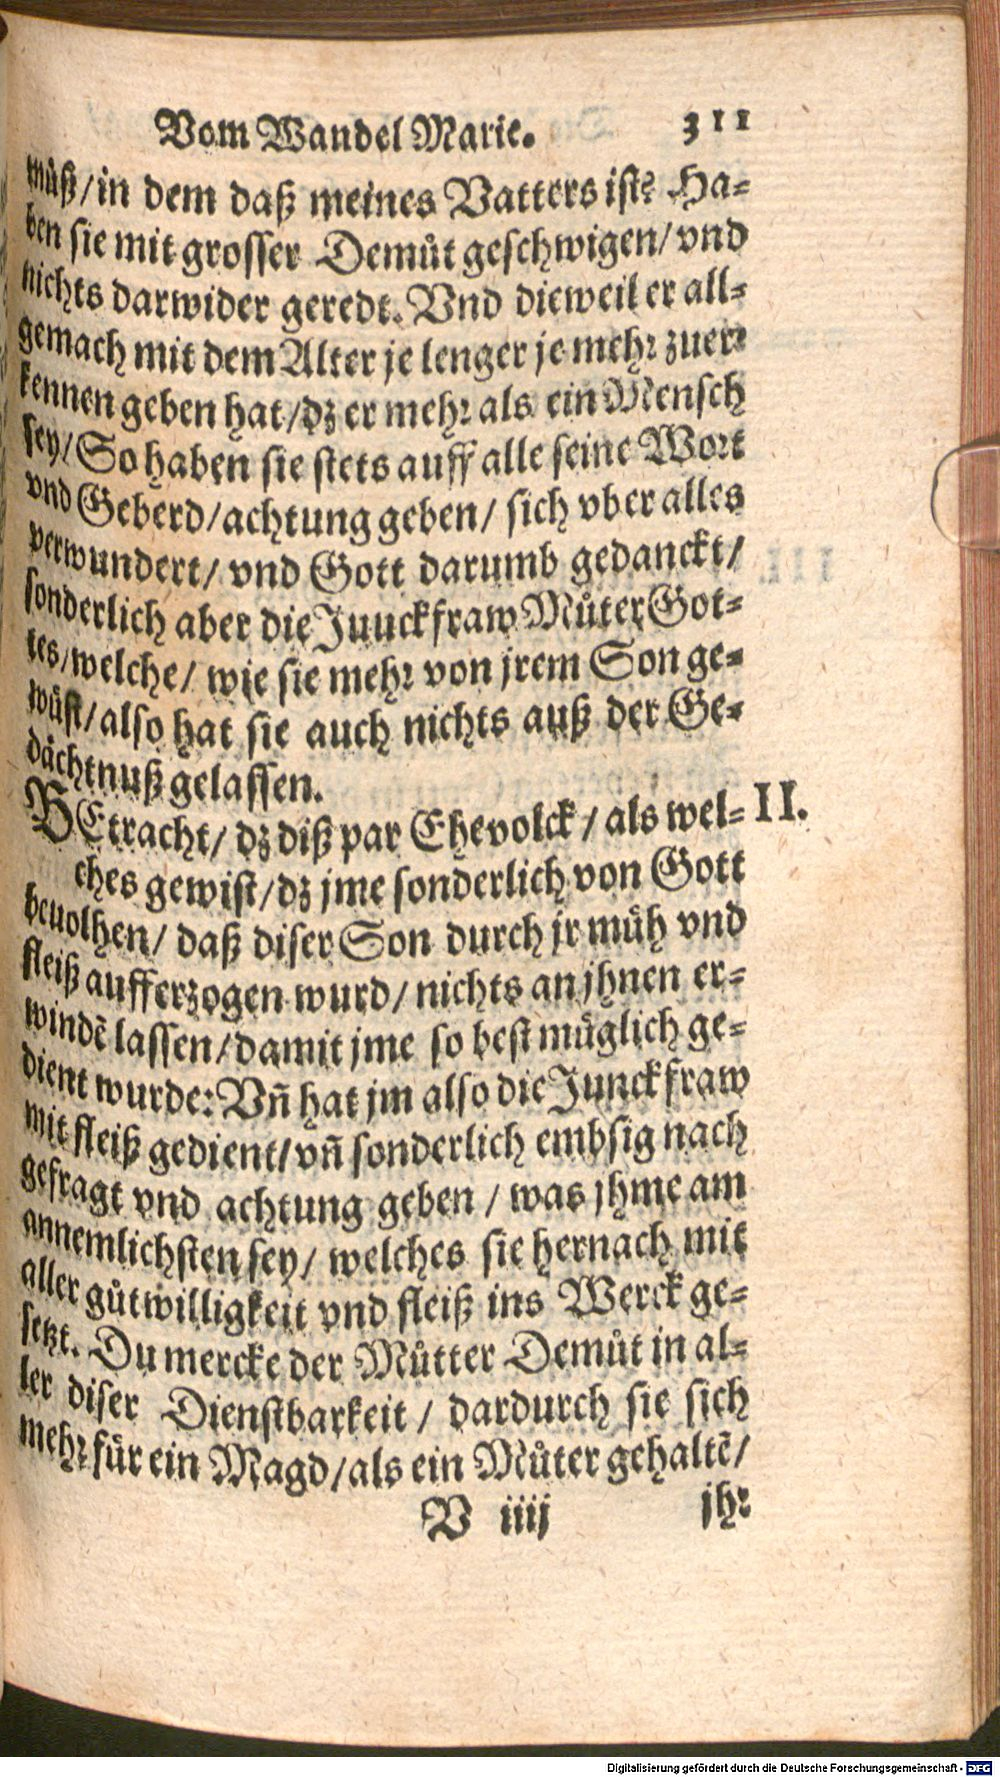 Vom Wandel Marie. 311
müß/in dem daß meines Vatters ist? Ha⸗
ben sie mit grosser Demůt geschwigen/ vnd
nichts darwider geredt. Vnd dieweil er all⸗
gemach mit dem Alter je lenger je mehr zuer⸗
kennen geben hat/dz er mehr als ein Mensch
sey/ So haben sie stets auff alle seine Wort
vnd Geberd/achtung geben/ sich vber alles
verwundert/ vnd Gott darumb gedanckt/
sonderlich aber die Juuckfraw Můter Got⸗
tes/welche/ wie sie mehr von jrem Son ge⸗
wüst/also hat sie auch nichts auß der Ge⸗
dächtnuß gelassen.
BEtracht/ dz diß par Ehevolck / als wel⸗ II.
ches gewist/dz jme sonderlich von Gott
beuolhen/ daß diser Son durch jr müh vnd
fleiß aufferzogen wurd/ nichts an jhnen er⸗
windē lassen/damit jme so best müglich ge⸗
dient wurde: Vn̄ hat jm also die Junckfraw
mit fleiß gedient/vn̄ sonderlich embsig nach
gefragt vnd achtung geben / was jhme am
annemlichsten sey/ welches sie hernach mit
aller gůtwilligkeit vnd fleiß ins Werck ge⸗
setzt. Du mercke der Můtter Demůt in al⸗
ler diser Dienstbarkeit / dardurch sie sich
mehr für ein Magd/als ein Můter gehaltē/
V iiij jhr
Digitalisierung gefördert durch die Deutsche Forschungsgemeinschaft - DFG